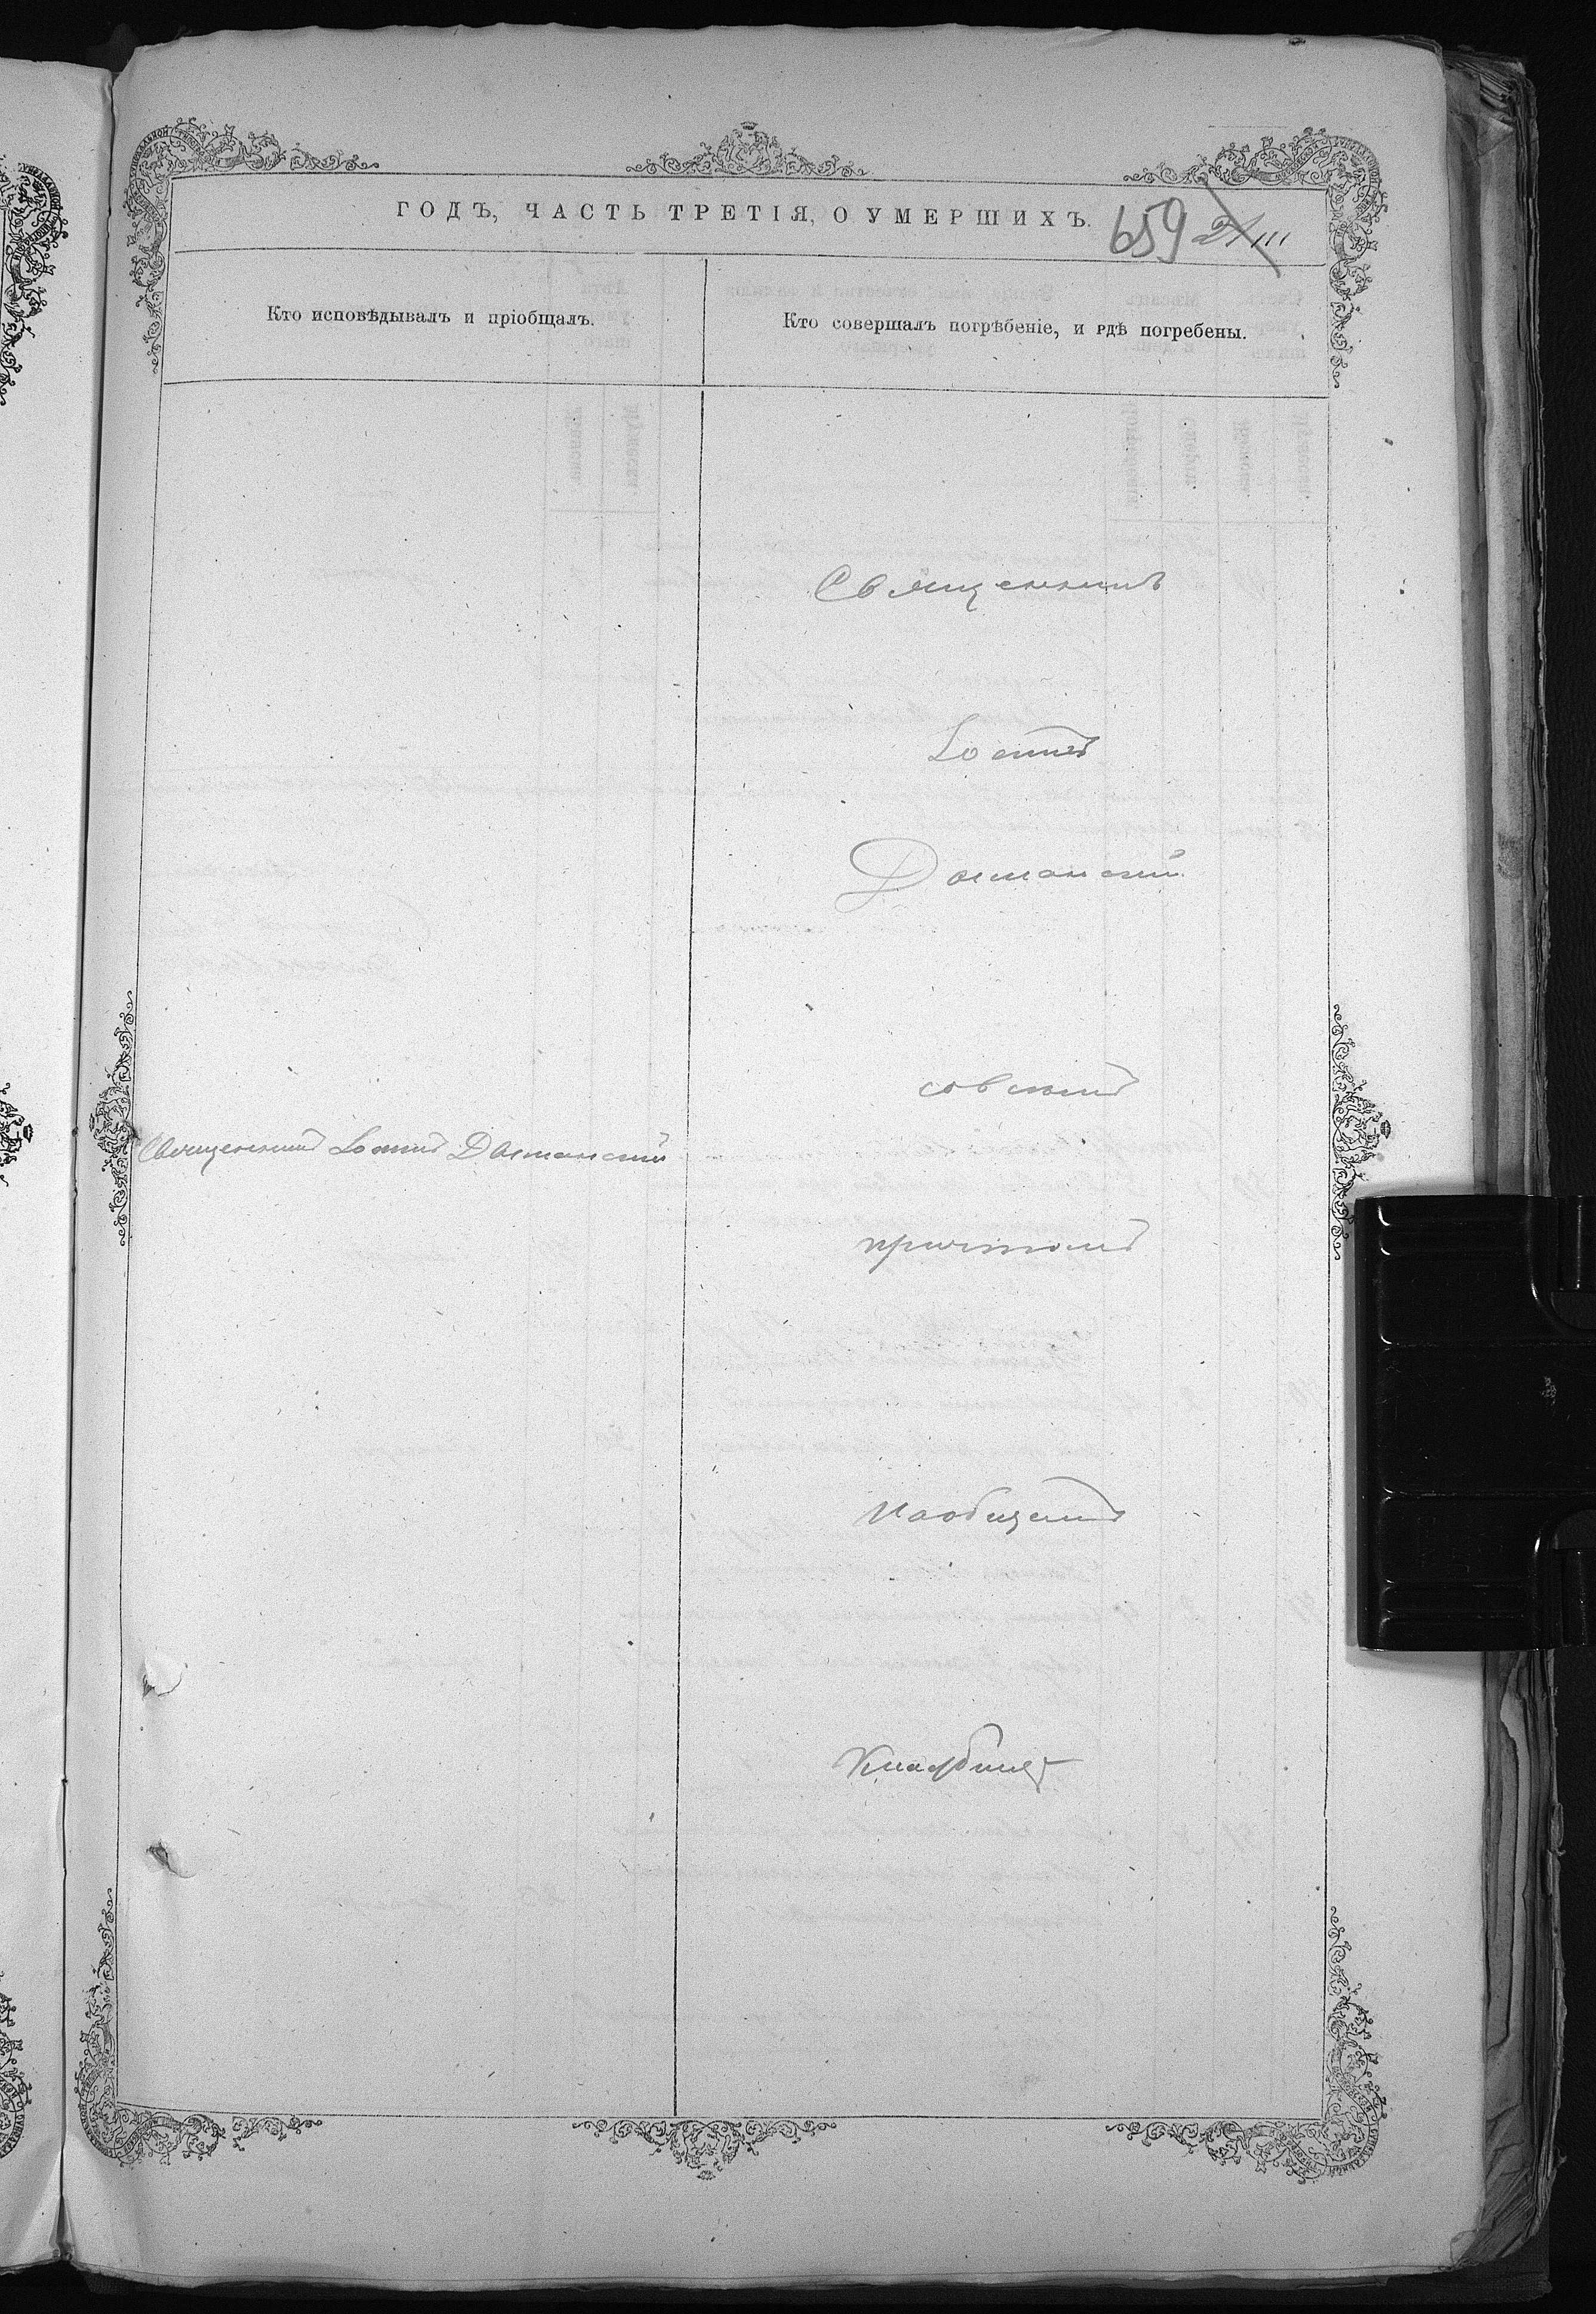 ГОДЪ, ЧАСТЬ ТРЕТІЯ, О УМЕРШИХЪ.
659
Кто исповѣдывалъ и пріобщалъ.
Кто совершалъ погрѣбеніе, и гдѣ погребены.
Священникъ
Іоаннъ
Доманскій
Священникъ Іоаннъ Доманскій
совсѣмъ
причтомъ
Наобщемъ
Кладбищѣ